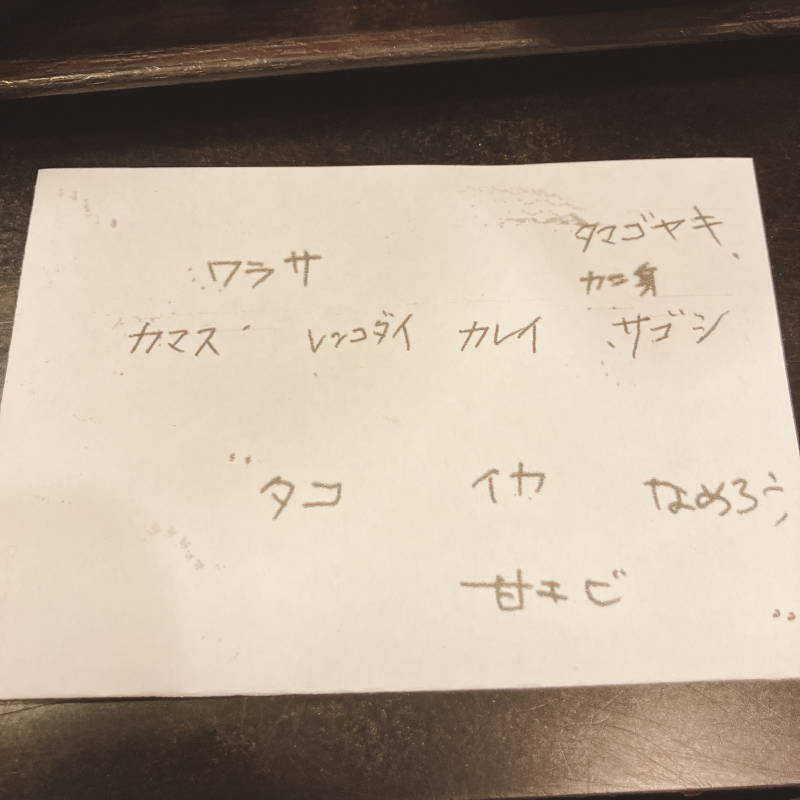 タマゴヤキ
ワラサ カニ身
カマス レンコダイ カレイ サゴシ
タコ イカ なめろう
甘エビ